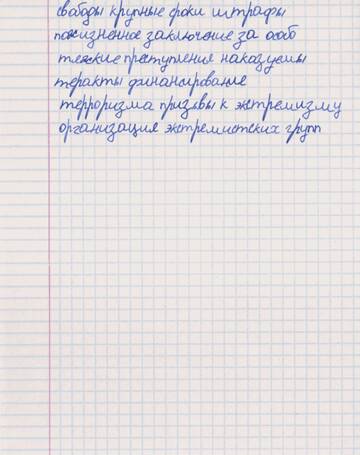 свабоды крупные сроки штрафы
пожизненное заключение за особ
тяжкие преступления наказуемы
теракты финансирование
терроризма призывы к экстремизму
организация экстремистских групп